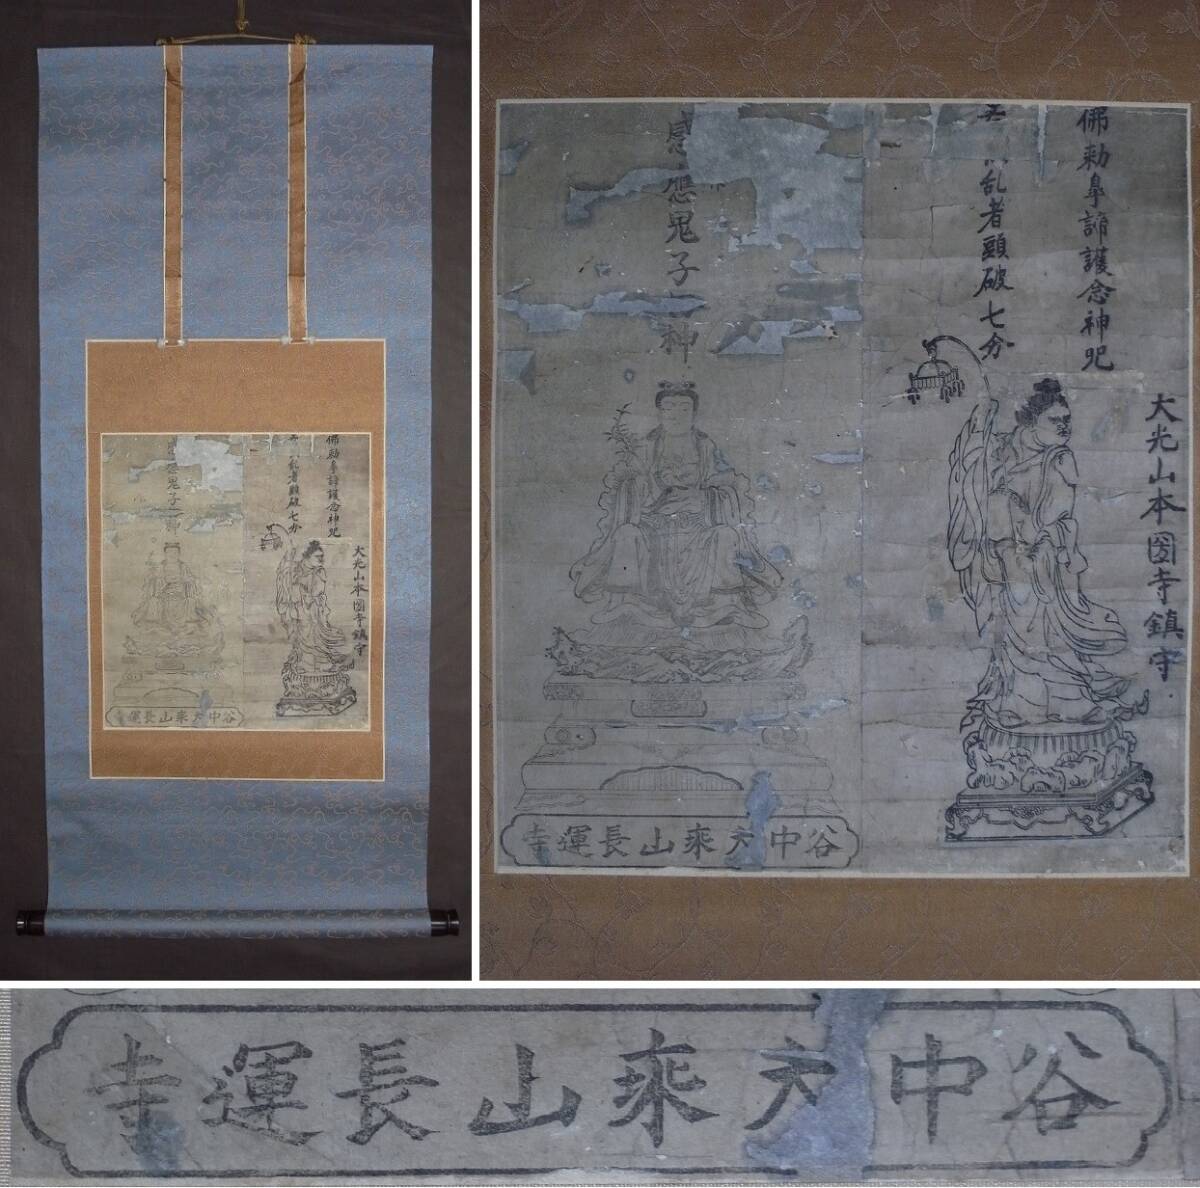 大光山本圀寺鎮守
佛勅皐諦護念神呪
乱者頭破七分
感應鬼子 神
谷中大乘山長運寺
大光山本圀寺鎮守
佛勅皐諦護念神呪
乱者頭破七分
感應鬼子 神
谷中大乘山長運寺
谷中大乘山長運寺